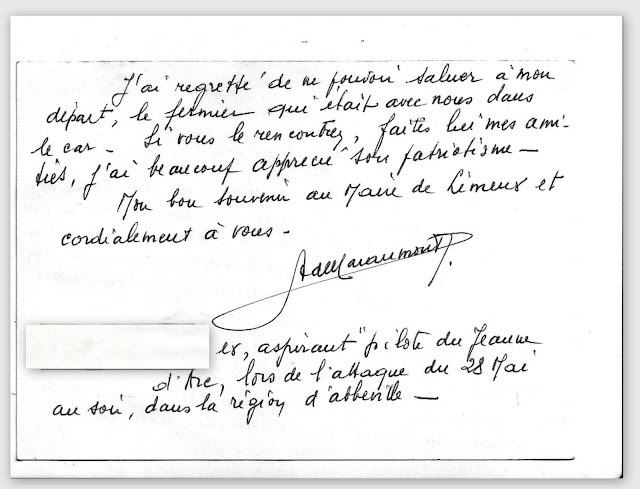 J'ai regretté de ne pouvoir saluer à mon
départ, le fermier qui était avec nous dans
le car - Si vous le rencontrez, faites lui mes ami-
tiés, j'ai beaucoup apprécié son patriotisme -
Mon bon souvenir au Maire de Limeux et
cordialement à vous -
er, aspirant" pilote du Jeanne
d'Arc, lors de l'attaque du 28 Mai
au soir, dans la région d'abbeville -